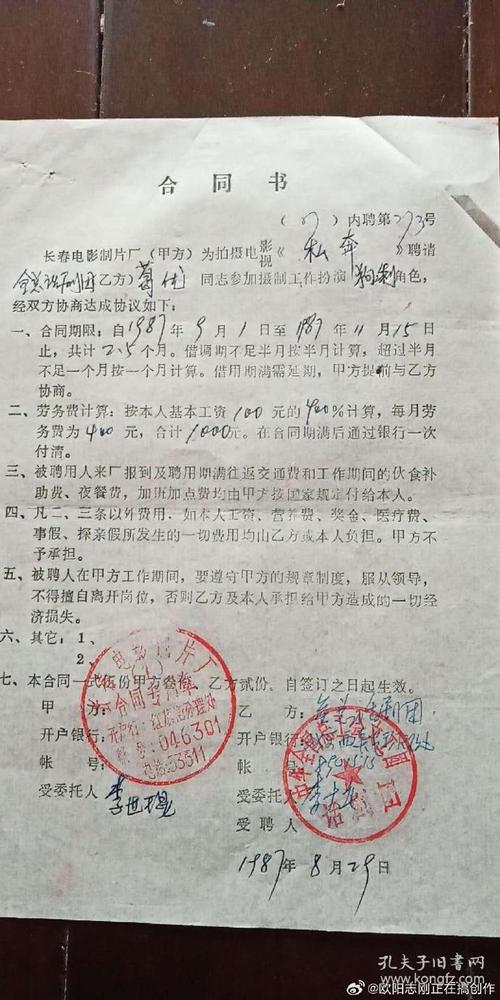 合同书
(87)内聘第273号
长春电影制片厂(甲方)为拍摄电影视《私奔》聘请
全总话剧团乙方)葛优同志参加摄制工作扮演 角色,
经双方协商达成协议如下:
一、合同期限:自1987年9月1日至1987年11月15日
止,共计2.5个月。借调期不足半月按半月计算,超过半月
不足一个月按一个月计算。借用期满需延期,甲方提前与乙方
协商。
二、劳务费计算:按本人基本工资100元的400%计算,每月劳
务费为400元,合计1000元。在合同期满后通过银行一次
付清。
三、被聘用人来厂报到及聘用期满往返交通费和工作期间的伙食补
助费、夜餐费,加班加点费均由甲方按国家规定付给本人。
四、凡二、三条以外费用,如本人工资、营养费、奖金、医疗费、
事假、探亲假所发生的一切费用均由乙方或本人负担。甲方不
予承担。
五、被聘人在甲方工作期间,要遵守甲方的规章制度,服从领导,
不得擅自离开岗位,否则乙方及本人承担给甲方造成的一切经
济损失。
六、其它:1、
2、
七、本合同一式伍份甲方叁份,乙方贰份,自签订之日起生效。
甲方:
开户银行:
帐号:
受委托人
电影制片厂
合同专用章
开户行:红旗街办理处
帐号:046301
电话:53511
乙方:全总话剧团
开户银行:
帐号:
受委托人
受聘人
中华全国总工会
话剧团
1987年8月29日
孔夫子旧书网
@欧阳志刚正在搞创作